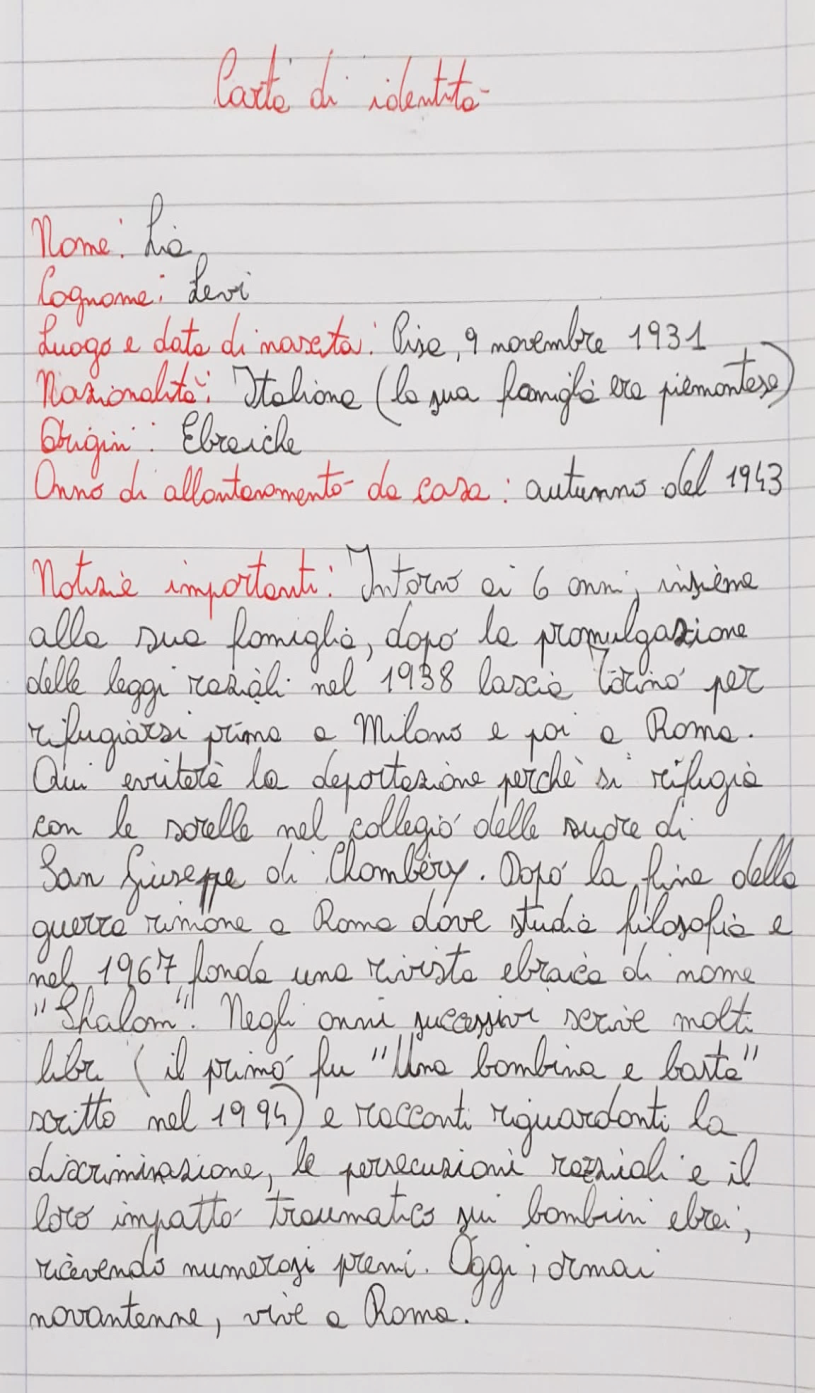 Carta di identità
Nome: Lia
Cognome: Levi
Luogo e data di nascita: Pisa, 9 novembre 1931
Nazionalità: Italiana (la sua famiglia era piemontese)
Origini: Ebraiche
Anno di allontanamento da casa: autunno del 1943
Notizie importanti: Intorno ai 6 anni, insieme
alla sua famiglia, dopo la promulgazione
delle leggi razziali nel 1938 lascia Torino per
rifugiarsi prima a Milano e poi a Roma.
Qui eviterà la deportazione perché si rifugia
con le sorelle nel collegio delle suore di
San Giuseppe di Chambéry. Dopo la fine della
guerra rimane a Roma dove studia filosofia e
nel 1967 fonda una rivista ebraica di nome
"Shalom". Negli anni successivi scrive molti
libri (il primo fu "Una bambina e basta"
scritto nel 1994) e racconti riguardanti la
discriminazione, le persecuzioni razziali e il
loro impatto traumatico sui bambini ebrei,
ricevendo numerosi premi. Oggi, ormai
novantenne, vive a Roma.